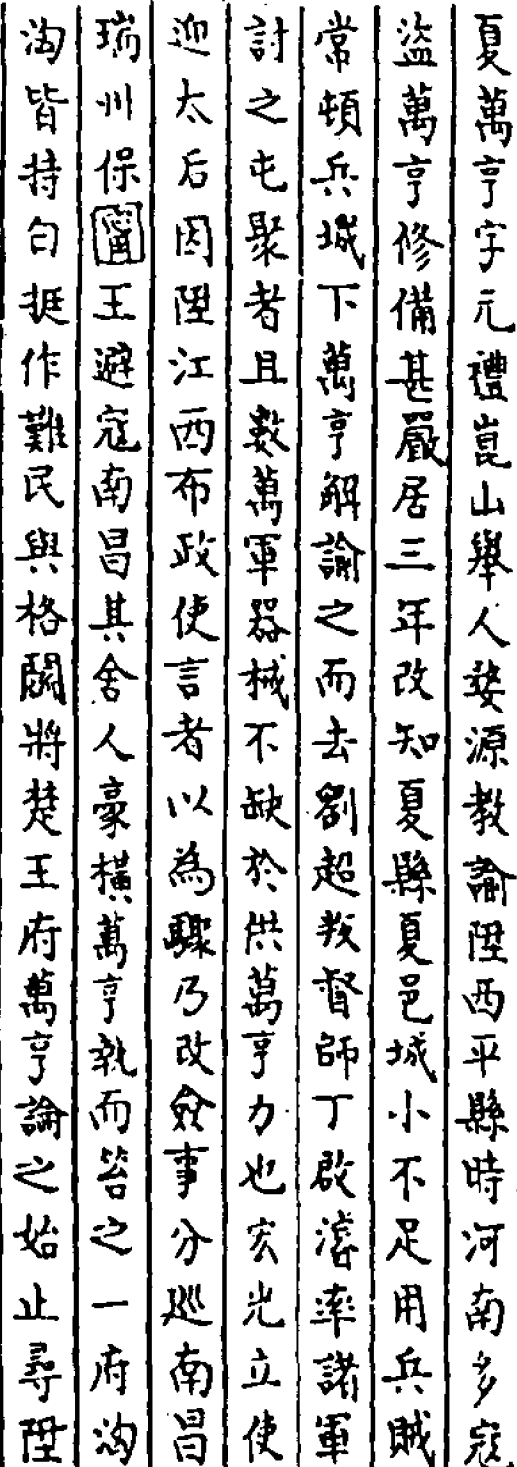 夏萬亨字元禮崑山舉人婺源教諭陞西平縣時河南多寇
盜萬亨修備甚嚴居三年改知夏縣夏邑城小不足用兵賊
常頓兵城下萬亨解諭之而去劉超叛督師丁啟濬率諸軍
討之屯聚者且數萬軍器械不缺於供萬亨力也宏光立使
迎太后因陞江西布政使言者以為驟乃改僉事分巡南昌
瑞州保寧王避寇南昌其舍人豪橫萬亨執而笞之一府洶
洶皆持白挺作難民與格鬭將楚王府萬亨論之始止尋陞